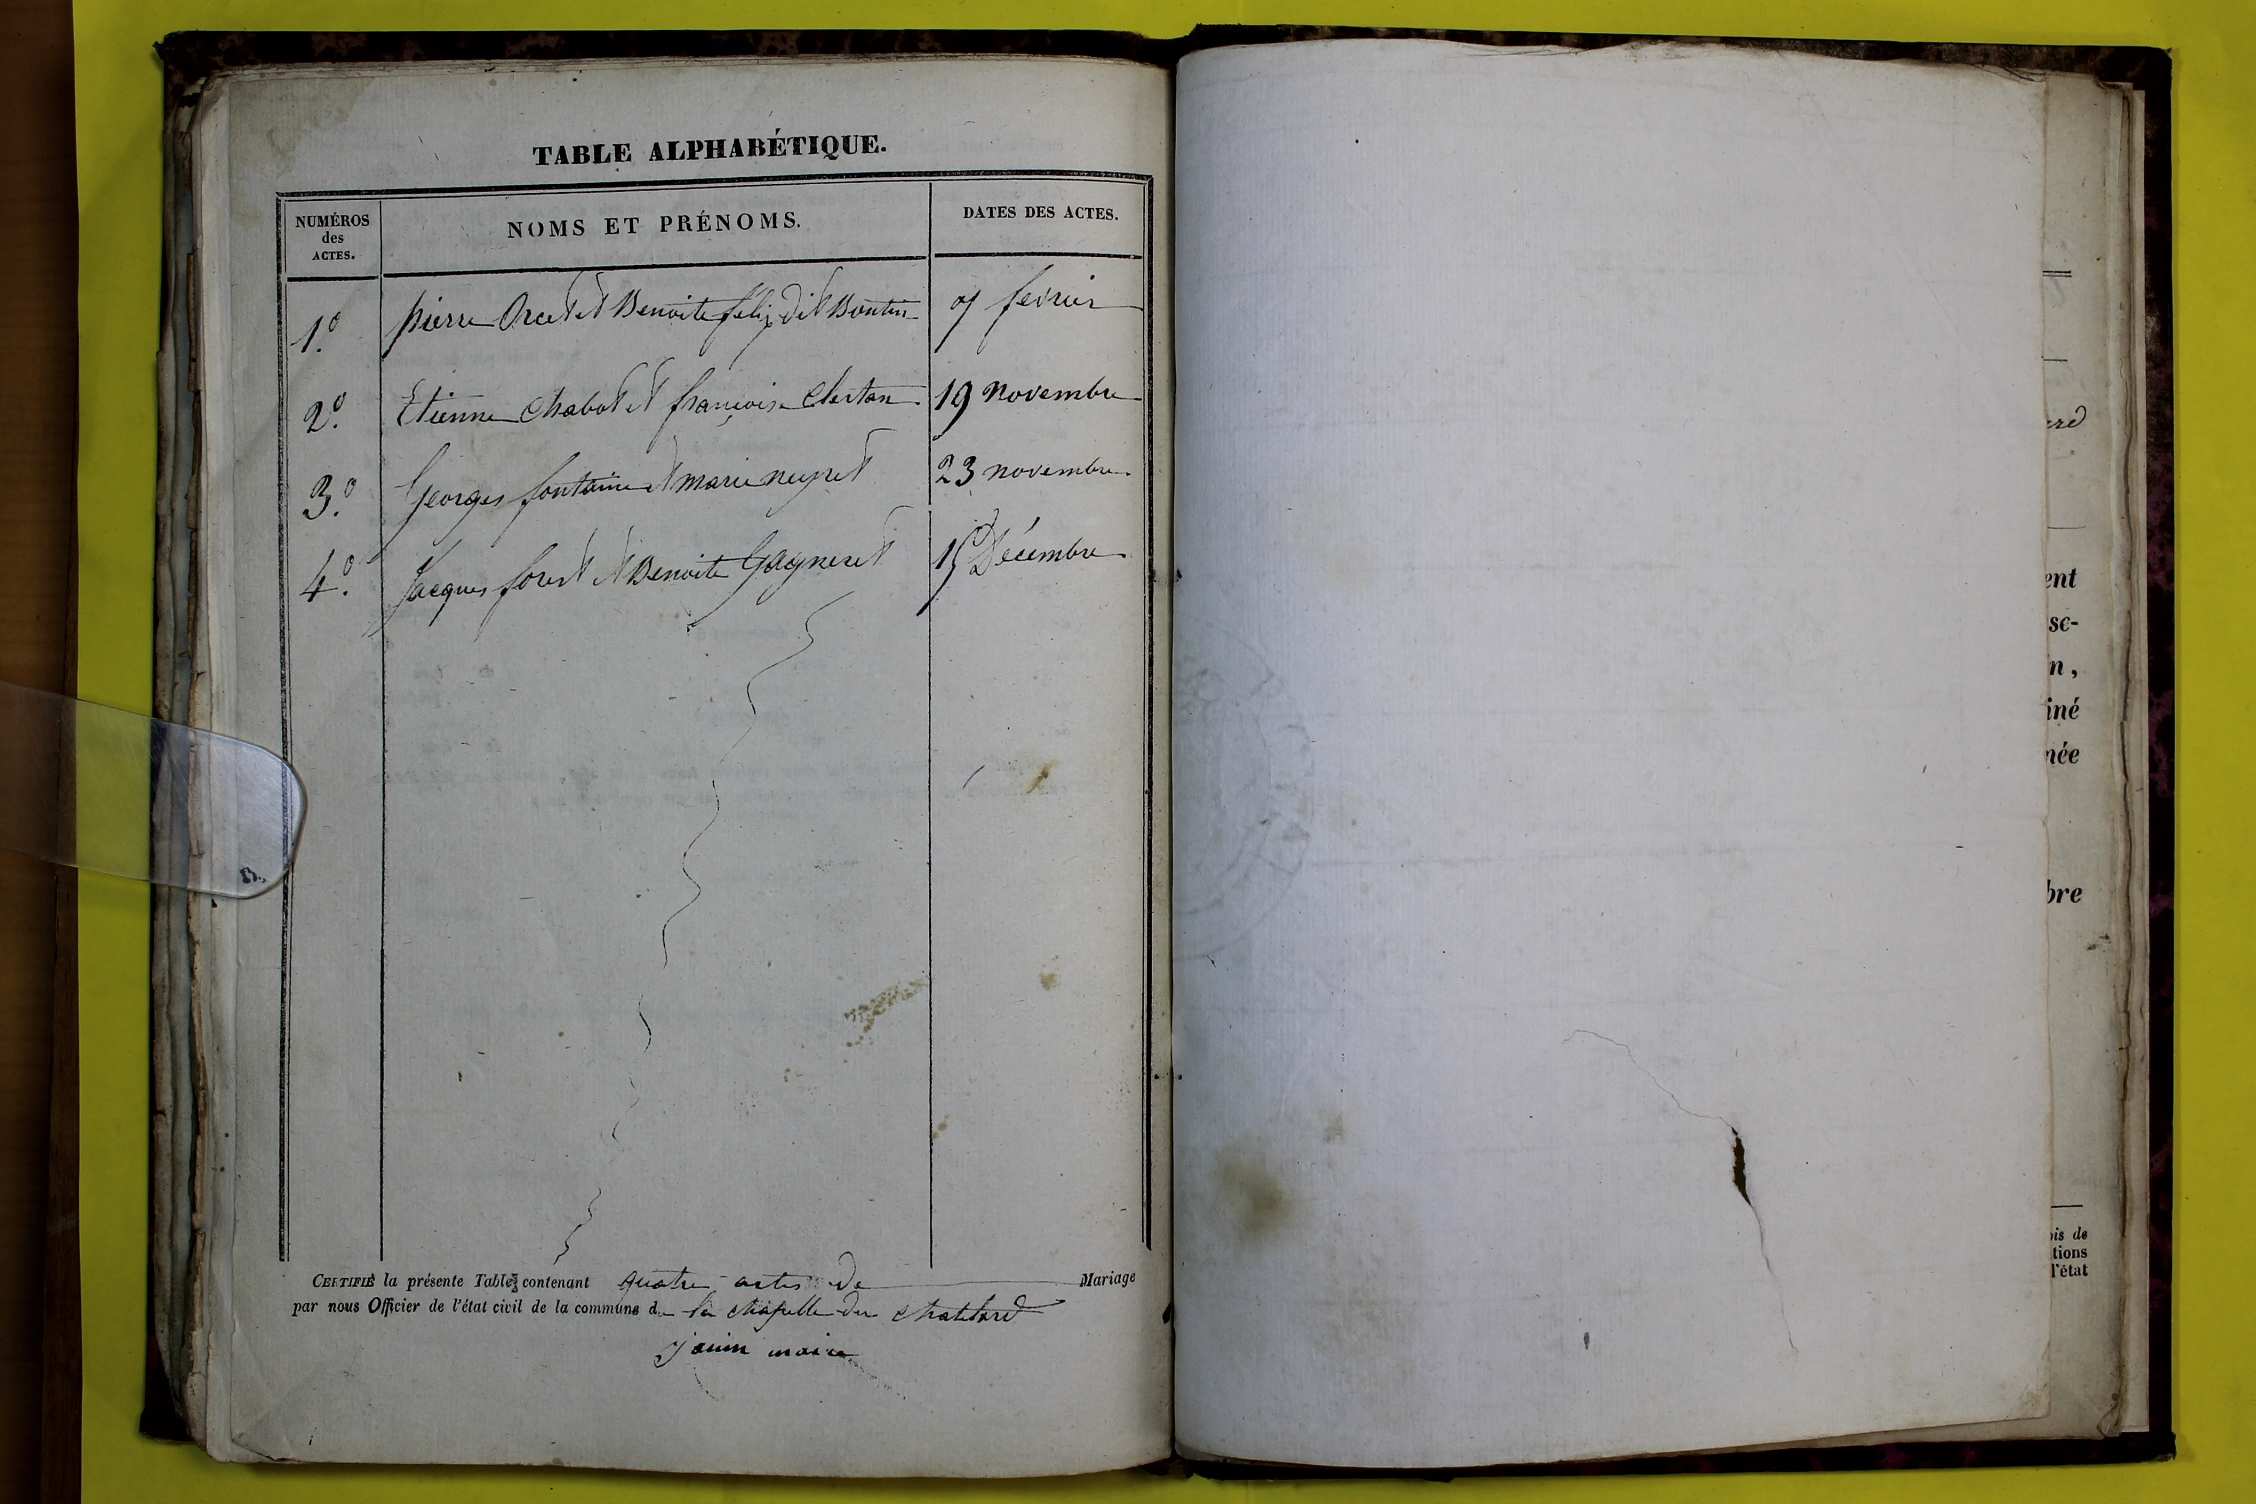 TABLE ALPHABÉTIQUE.
NUMÉROS
des
ACTES.
NOMS ET PRÉNOMS.
DATES DES ACTES.
1.° pierre Orcet et Benoite félix dit Boutin 7 fevrier
2.° Etienne Chabot et françoise Cherton 19 novembre
3.° Georges fontaine et marie neyret 23 novembre
4.° Jacques forest et Benoite Gagneret 15 Décembre
CERTIFIÉ la présente Table contenant quatre actes de Mariage
par nous Officier de l'état civil de la commune de la chapelle du chatelard
janin maire
ent
se-
n,
iné
née
bre
ois de
tions
l'état